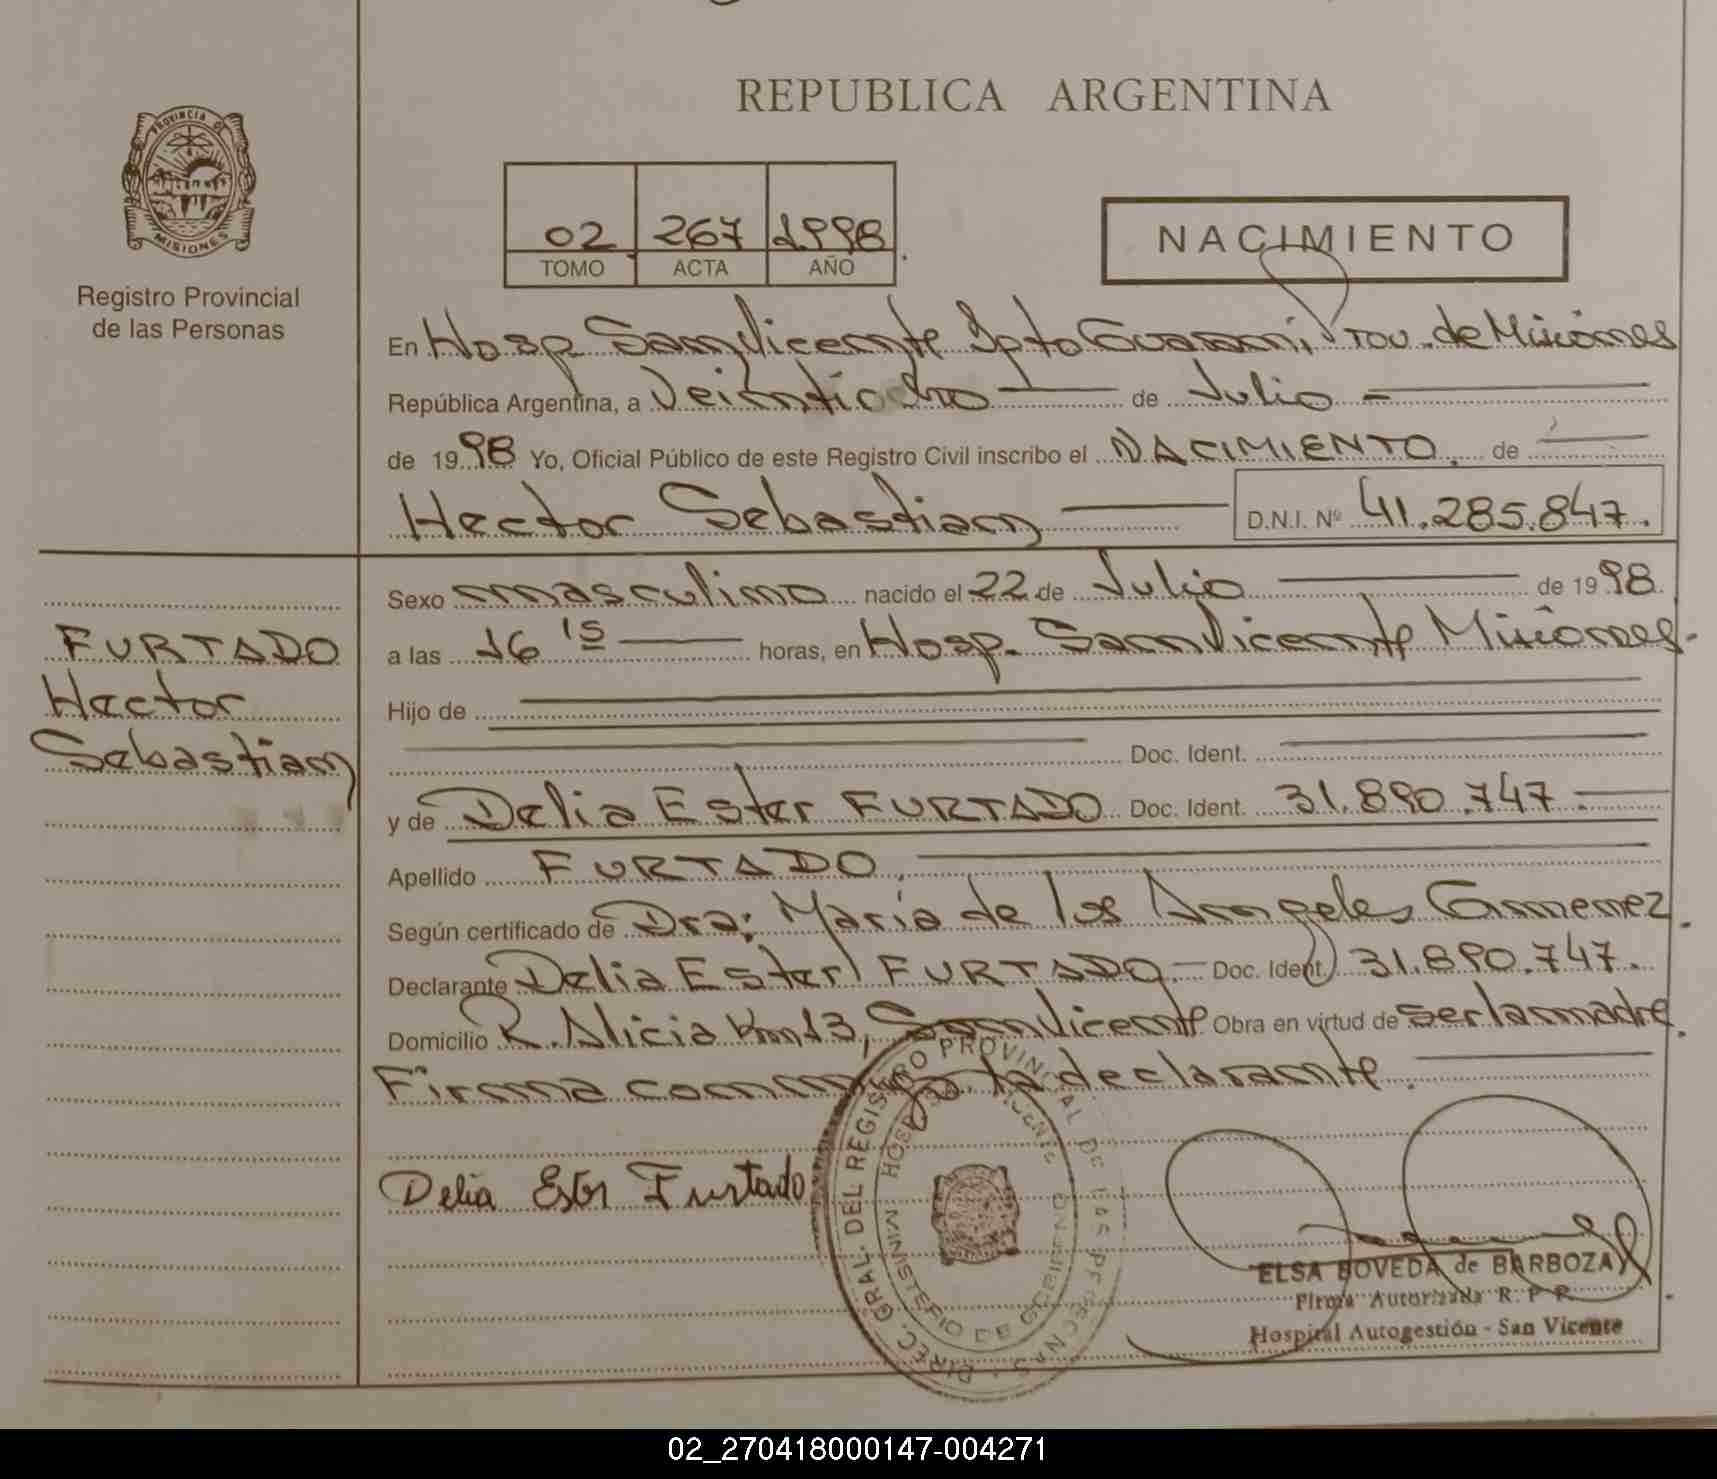 REPUBLICA ARGENTINA
PROVINCIA DE
MISIONES
Registro Provincial
de las Personas
02 267 1998
TOMO ACTA AÑO
NACIMIENTO
En Hosp. San Vicente Dpto Guarani, Prov. de Misiones
República Argentina, a Veintiocho de Julio
de 1998 Yo, Oficial Público de este Registro Civil inscribo el NACIMIENTO. de
Hector Sebastian D.N.I. Nº 41.285.847.
FURTADO
Hector
Sebastian
Sexo masculino nacido el 22 de Julio de 1998
a las 16 15 horas, en Hosp. San Vicente Misiones.
Hijo de
Doc. Ident.
y de Delia Ester FURTADO Doc. Ident. 31.890.747.
Apellido FURTADO.
Según certificado de Dra: Maria de los Angeles Gimenez.
Declarante Delia Ester FURTADO. Doc. Ident. 31.890.747.
Domicilio R. Alicia Km 13, San Vicente Obra en virtud de ser la madre.
Firma conmigo la declarante.
Delia Ester Furtado
DIREC. GRAL. DEL REGISTRO PROVINCIAL DE LAS PERSONAS
MINISTERIO DE GOBIERNO
ELSA BOVEDA de BARBOZA
Firma Autorizada R. P. P.
Hospital Autogestión - San Vicente
02_270418000147-004271